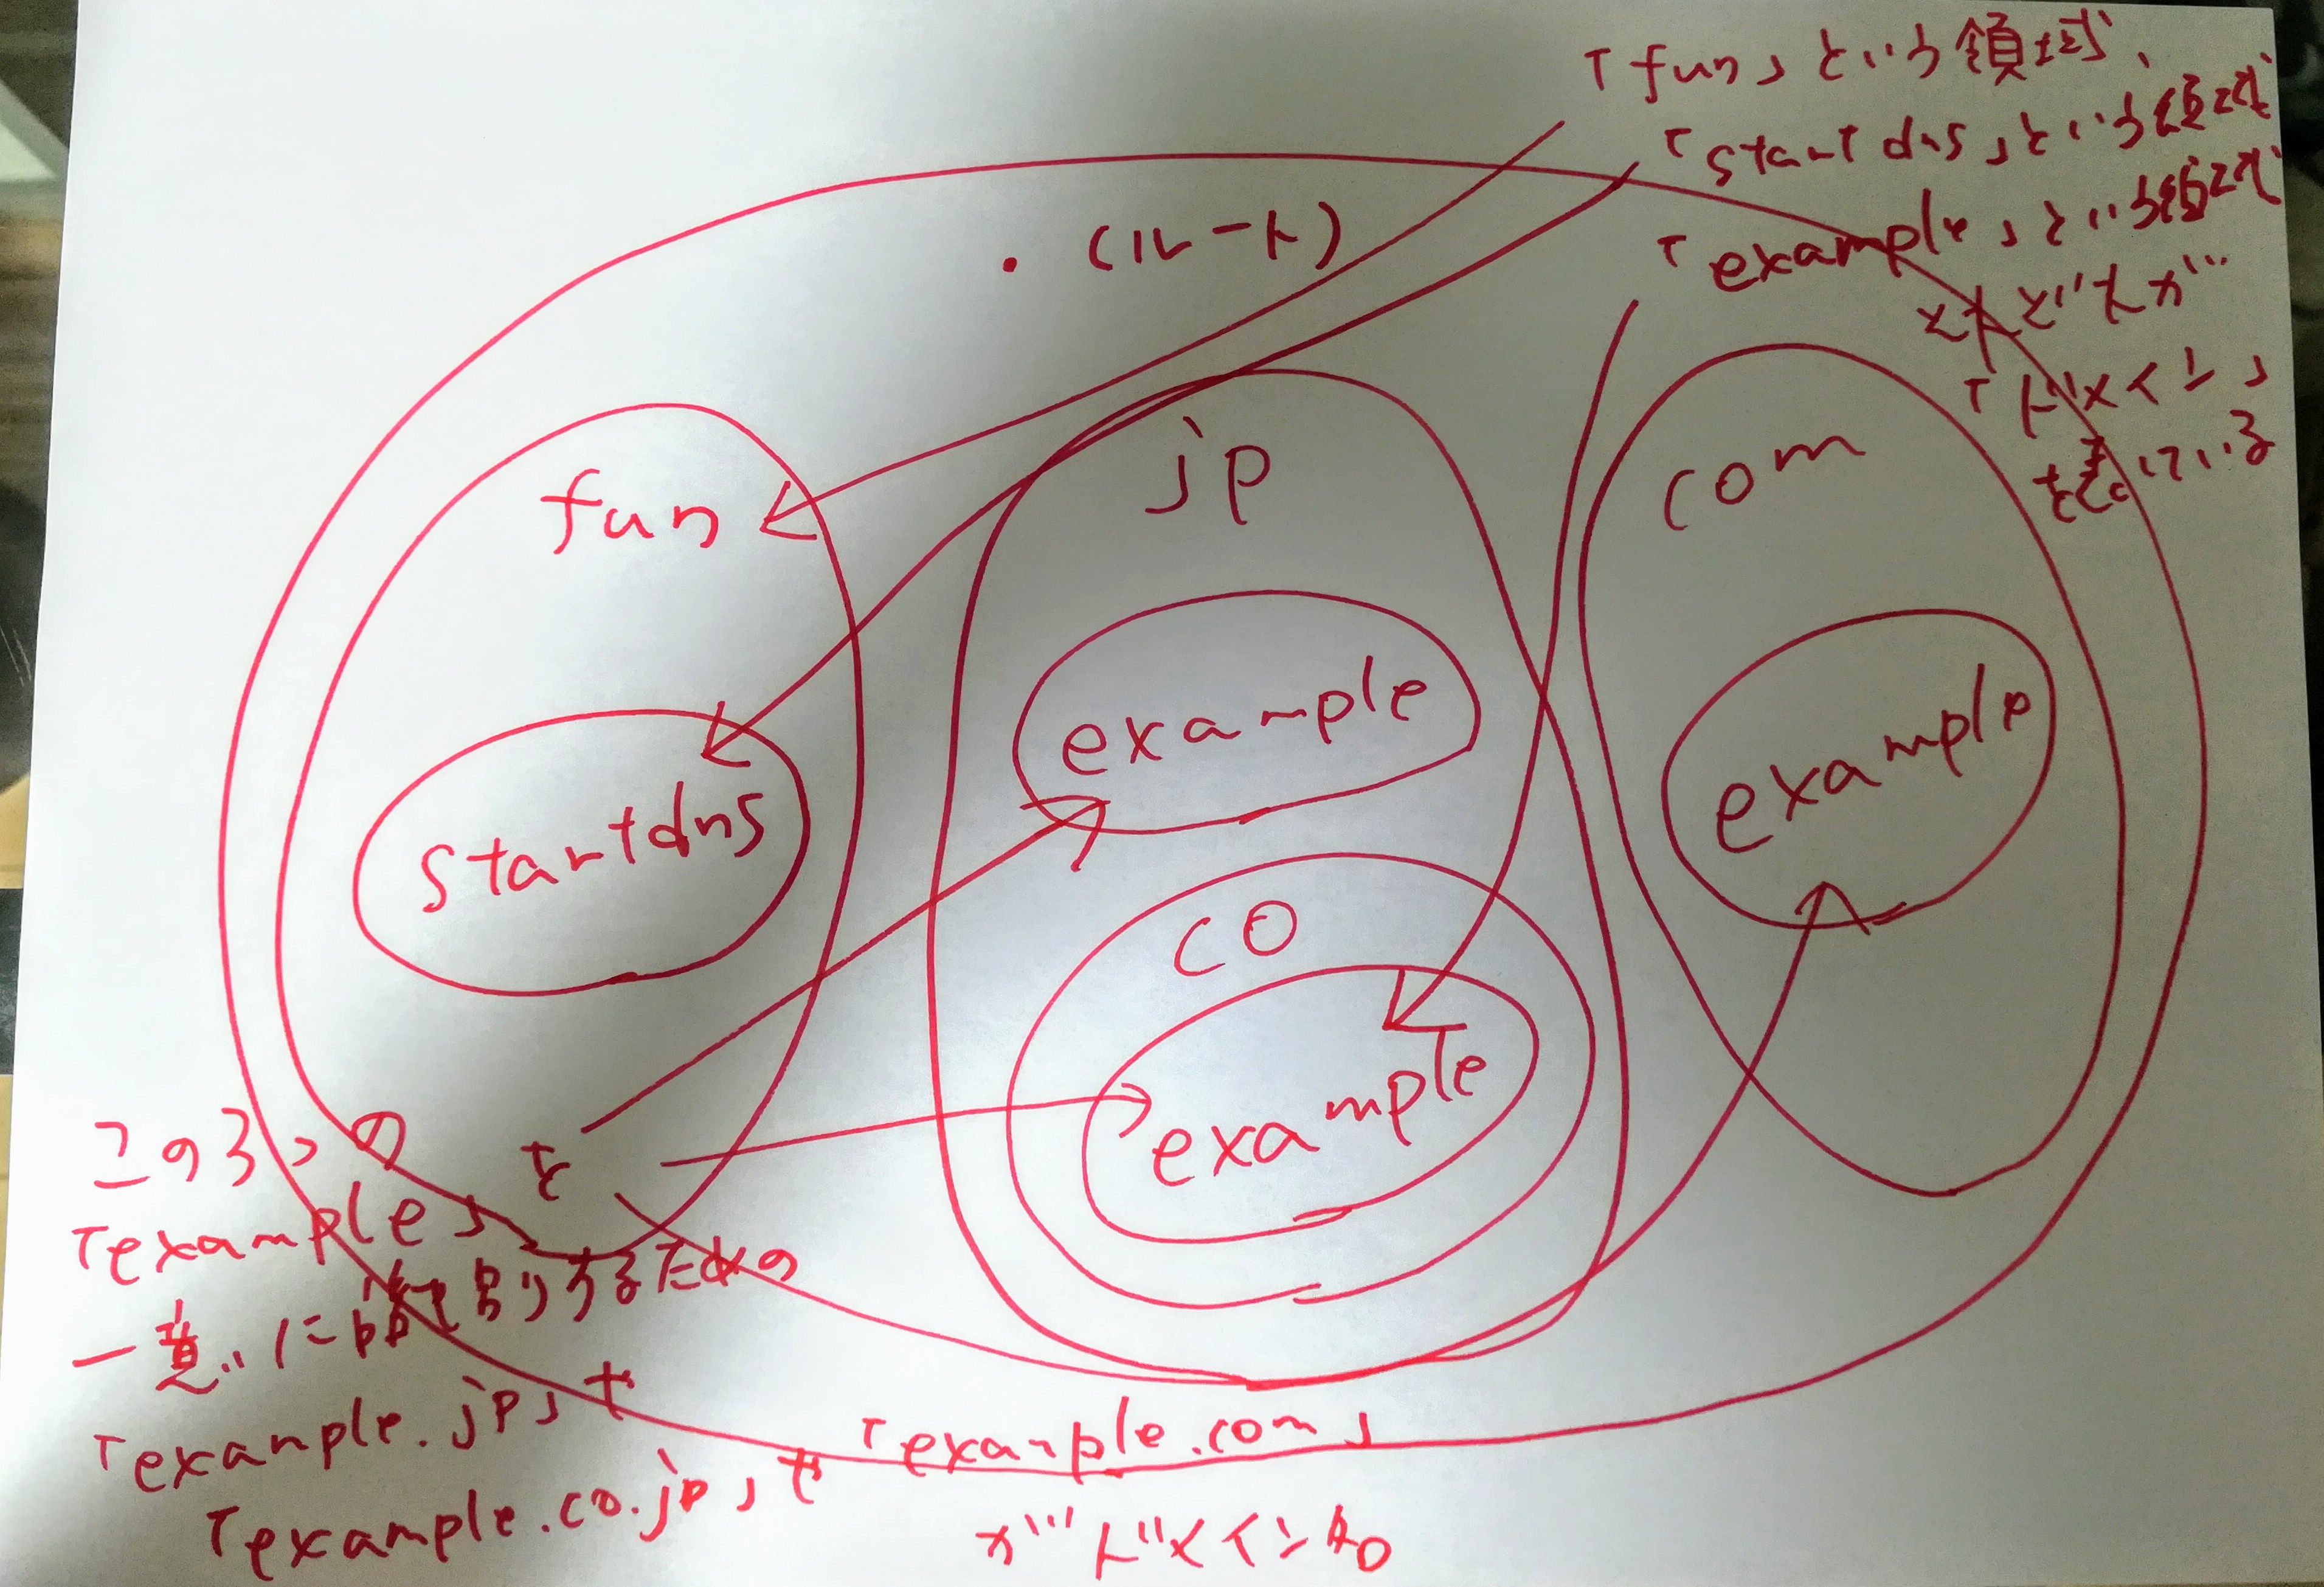 「fun」という領域、
「startdns」という領域
「example」という領域
などなどが
「ドメイン」
を表している
．(ルート)
fun
startdns
jp
example
co
example
com
example
この3つの
「example」を
一意に識別するための
「example.jp」や
「example.co.jp」や
「example.com」
がドメイン名